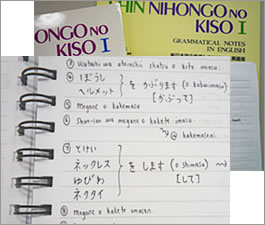 SHIN NIHONGO NO
KISO I
GRAMMATICAL NOTES
IN ENGLISH
ONGO NO
KISO I
③ Watashi wa atarashii shatsu o kite imasu.
④ ぼうし
ヘルメット
を かぶります (o kaburimasu)
[かぶって]
⑤ Megane o kakemasu.
⑥ Shan-san wa megane o kakete imasu.
kakemasen.
⑦ とけい
ネックレス
ゆびわ
ネクタイ
を します (o shimasu)
[して]
⑧ Megane o kakete imasen.